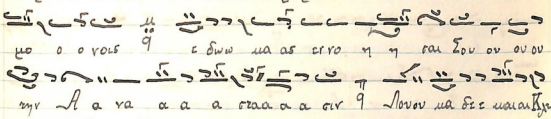 μο ο ο νοις ε δωω κα ας εννο η η σαι Σου ου ου ου
την Α α να α α α σταα α α σιν Λουου κα δεε και αι Κλε